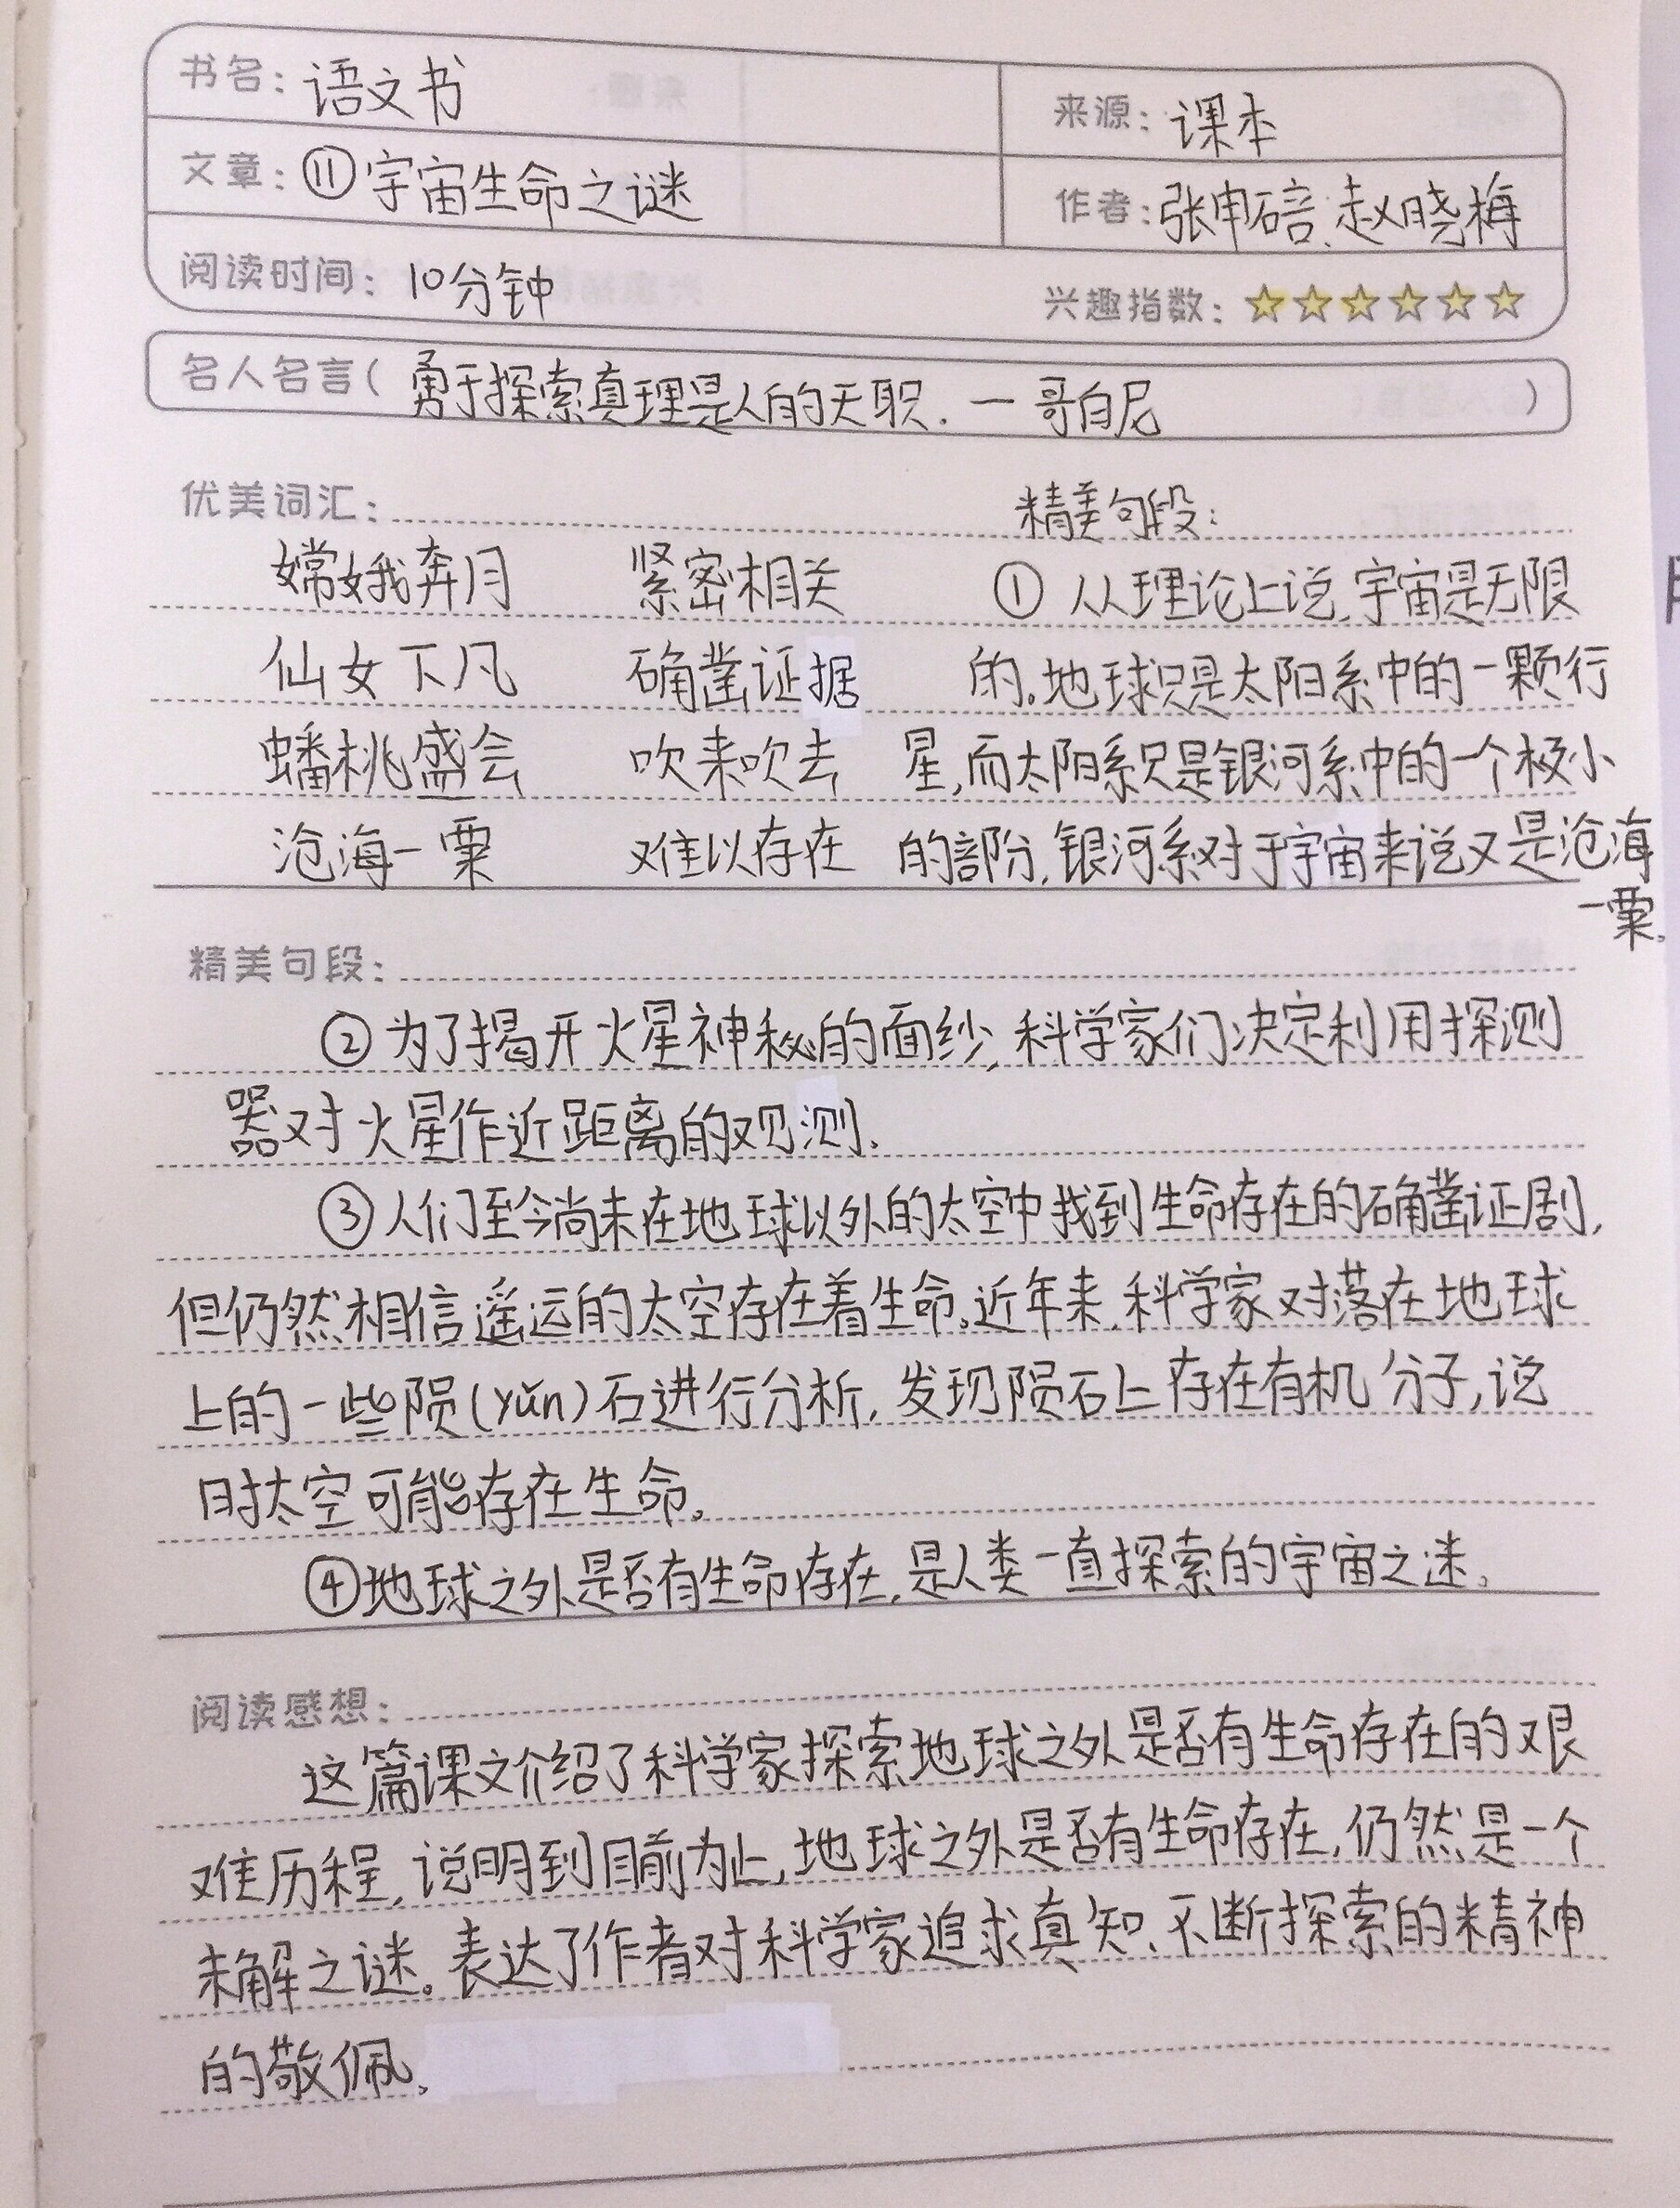 书名：语文书
来源：课本
文章：⑪宇宙生命之谜
作者：张申碚、赵晓梅
阅读时间：10分钟
兴趣指数：☆☆☆☆☆☆
名人名言（勇于探索真理是人的天职.一哥白尼）
优美词汇：
嫦娥奔月 紧密相关
仙女下凡 确凿证据
蟠桃盛会 吹来吹去
沧海一粟 难以存在
精美句段：
① 从理论上说，宇宙是无限
的。地球只是太阳系中的一颗行
星，而太阳系只是银河系中的一个极小
的部分，银河系对于宇宙来说又是沧海
一粟。
精美句段：
②为了揭开火星神秘的面纱，科学家们决定利用探测
器对火星作近距离的观测。
③人们至今尚未在地球以外的太空中找到生命存在的确凿证剧，
但仍然相信遥运的太空存在着生命。近年来，科学家对落在地球
上的一些陨(yǔn)石进行分析，发现陨石上存在有机分子，说
明太空可能存在生命。
④地球之外是否有生命存在，是人类一直探索的宇宙之迷。
阅读感想：
这篇课文介绍了科学家探索地球之外是否有生命存在的艰
难历程，说明到目前为止，地球之外是否有生命存在，仍然是一个
未解之谜。表达了作者对科学家追求真知、不断探索的精神
的敬佩。